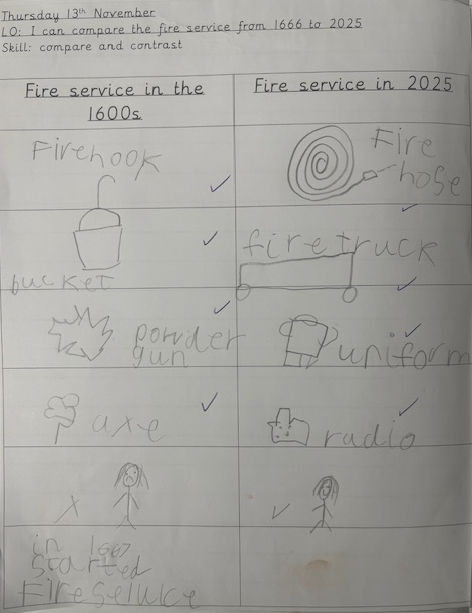 Thursday 13th November
LO: I can compare the fire service from 1666 to 2025
Skill: compare and contrast
Fire service in the 1600s
Fire service in 2025
Firehook
Fire hose
bucket
firetruck
powder gun
uniform
axe
radio
in 1667
started
Fireseluice